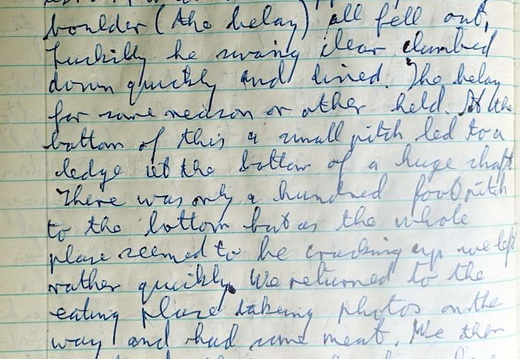 boulder (the belay) all fell out,
luckily he swung clear climbed
down quickly and lived. The belay
for some reason or other held. At the
bottom of this a small pitch led to a
ledge at the bottom of a huge shaft
There was only a hundred foot pitch
to the bottom but as the whole
place seemed to be cracking up we left
rather quickly. We returned to the
eating place taking photos on the
way and had some meat. We then